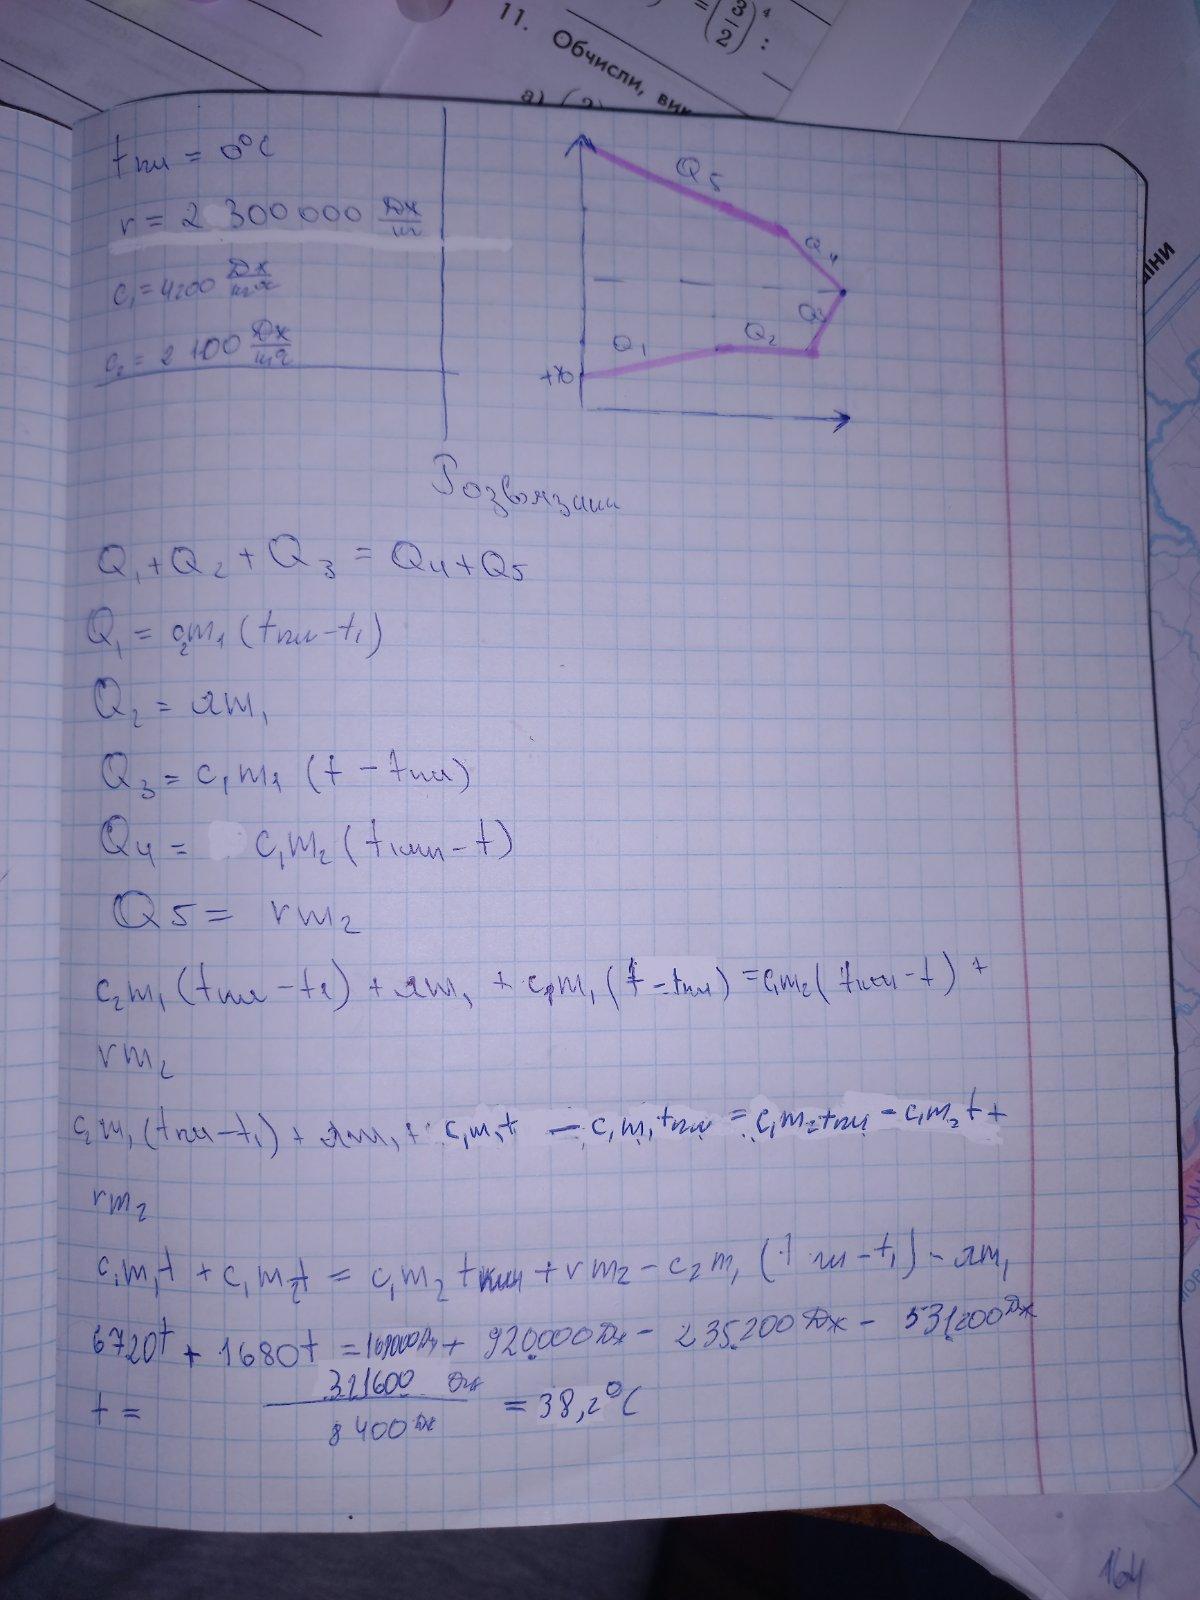 11. Обчисли, вик
а) (2)
= (3/2)⁴ :
tпл = 0°C
r = 2 300 000 Дж/кг
c₁ = 4200 Дж/кг°C
c₂ = 2 100 Дж/кг°C
Q₅
Q₄
Q₃
Q₁ Q₂
Розвязання
Q₁ + Q₂ + Q₃ = Q₄ + Q₅
Q₁ = c₂m₁ (tпл − t₁)
Q₂ = λm₁
Q₃ = c₁m₁ (t − tпл)
Q₄ = c₁m₂ (tкип − t)
Q5 = rm₂
c₂m₁ (tпл − t₁) + λm₁ + c₁m₁ (t − tпл) = c₁m₂ (tкип − t) +
rm₂
c₂m₁ (tпл − t₁) + λm₁ + c₁m₁t − c₁m₁tпл = c₁m₂tкип − c₁m₂t +
rm₂
c₁m₁t + c₁m₂t = c₁m₂tкип + rm₂ − c₂m₁ (tпл − t₁) − λm₁
6720t + 1680t = 168000Дж + 920000Дж − 235200Дж − 531200Дж
t = 321600 Дж / 8400Дж = 38,2°C
іни
164